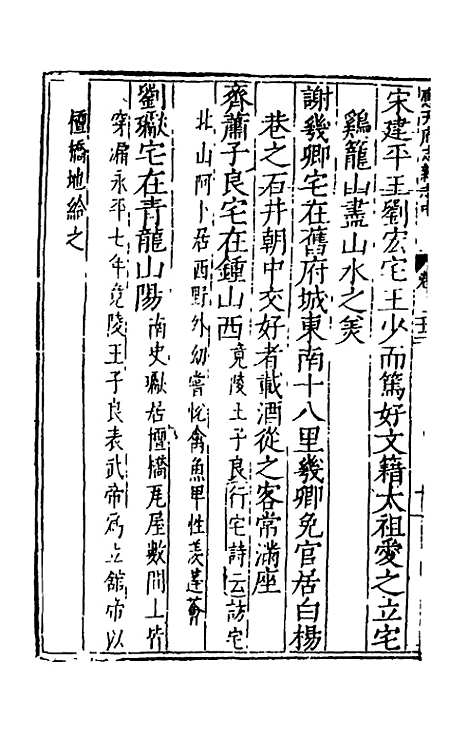 宋建平王劉宏宅王少而篤好文籍太祖愛之立宅
雞龍山盡山水之美
謝幾卿宅在舊府城東南十八里幾卿免官居白楊
巷之石井朝中交好者載酒從之客常滿座
齊蕭子良宅在鍾山西竟陵王子良行宅詩云訪宅
北山阿卜居西野外幼嘗悅禽魚早性羨蓬薈
劉瓛宅在青龍山陽南史瓛居檀橋瓦屋數間上皆
穿漏永平七年竟陵王子良表武帝為立館帝以
檀橋地給之